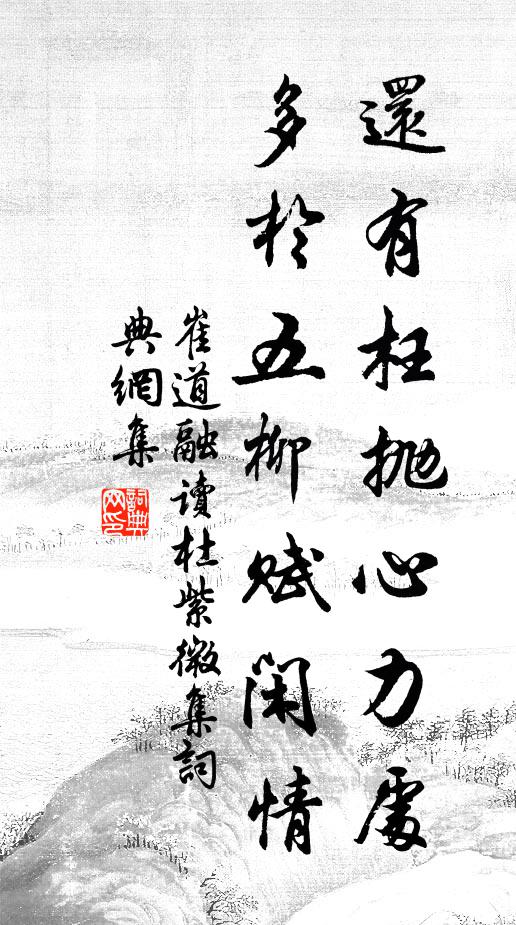 還有枉抛心力處
多於五柳賦閑情
崔道融讀杜紫微集詞
典網集
詞典
网印